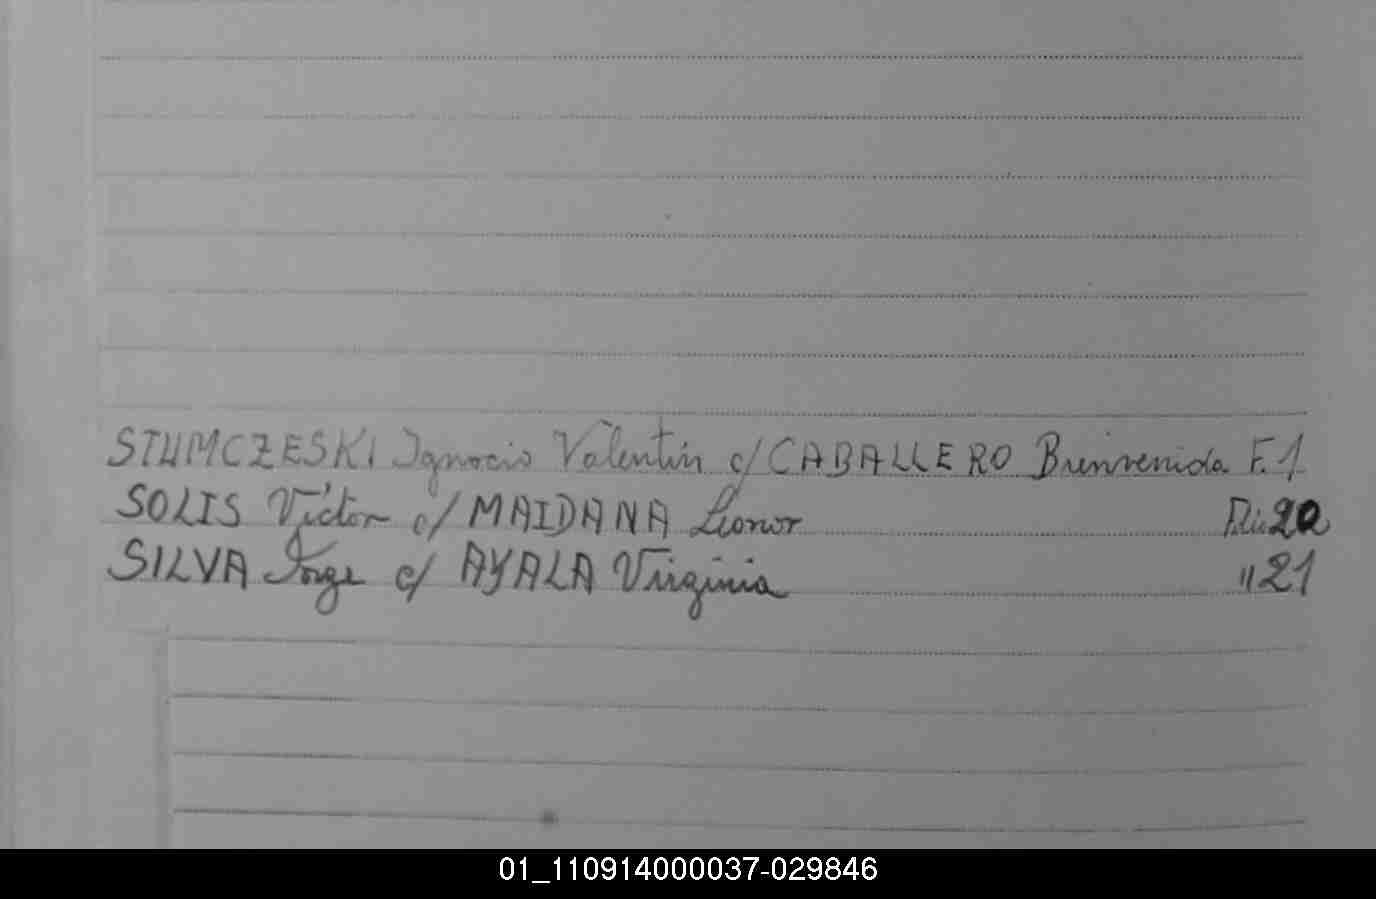 STUMCZESKI Ignacio Valentin c/ CABALLERO Bienvenida F. 1
SOLIS Víctor c/ MAIDANA Leonor 20
SILVA Jorge c/ AYALA Virginia " 21
01_110914000037-029846